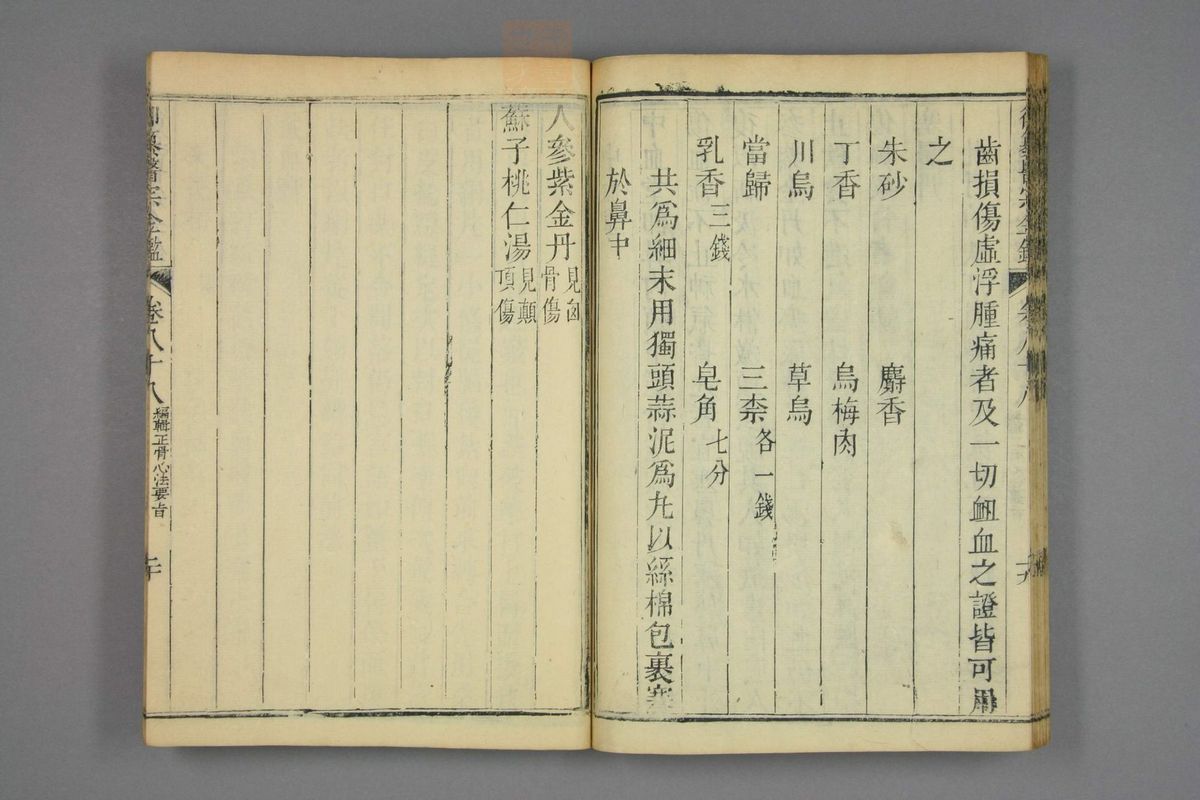 齒損傷虛浮腫痛者及一切衄血之證皆可用
之
朱砂 麝香
丁香 烏梅肉
川烏 草烏
當歸 三柰各一錢
乳香三錢 皂角七分
共爲細末用獨頭蒜泥爲丸以絲棉包裹塞
於鼻中
御纂醫宗金鑑 卷八十八 十九
人參紫金丹見囟骨傷
蘇子桃仁湯見顚頂傷
御纂醫宗金鑑 卷八十八 編輯正骨心法要旨 二十